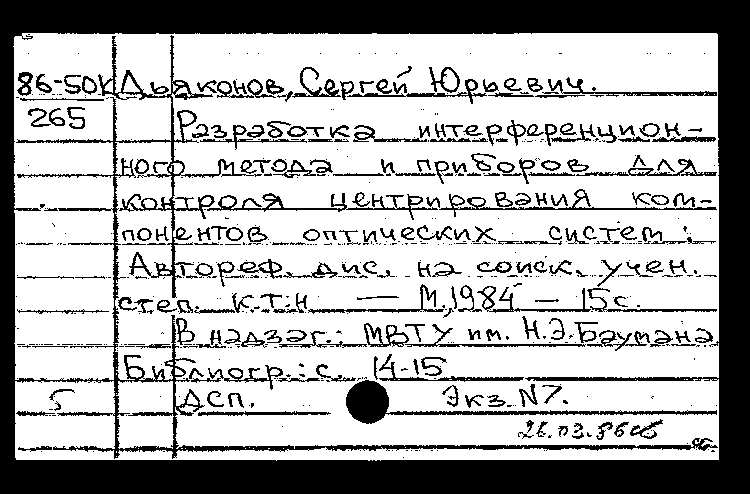 86-50к Дьяконов, Сергей Юрьевич.
265 Разработка интерференцион-
ного метода и приборов для
контроля центрирования ком-
понентов оптических систем:
Автореф. дис. на соиск. учен.
степ. к.т.н — М., 1984 — 15с.
В надзаг.: МВТУ им. Н.Э.Баумана
Библиогр.: с. 14-15.
5 ДСП. Экз. N7.
26.03.86